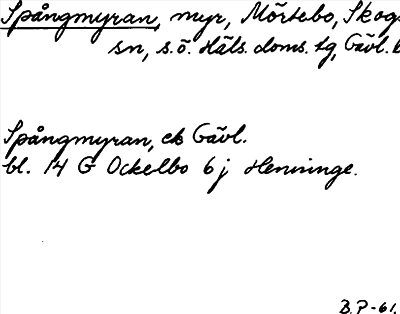 Spångmyran, myr, Mörtebo, Skogs
sn, s.ö. Häls. doms. tg, Gävl. 
Spångmyran, ek Gävl.
bl. 14 G Ockelbo 6 j Henninge.
B.P-61.